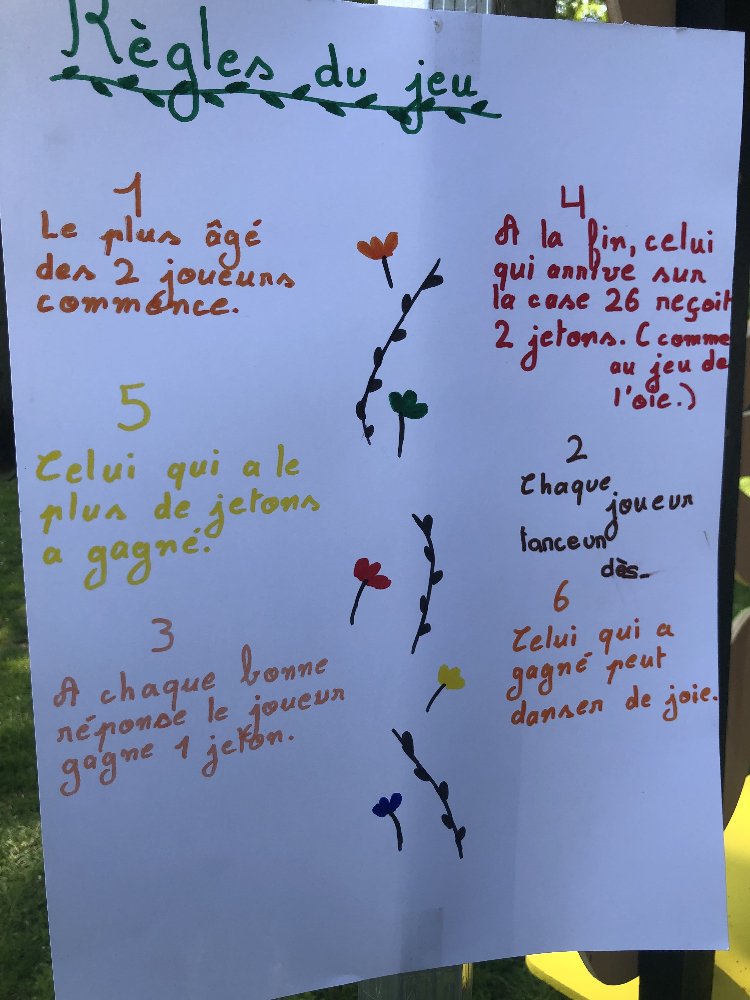 Règles du jeu
1
Le plus âgé
des 2 joueurs
commence.
5
Celui qui a le
plus de jetons
a gagné.
3
A chaque bonne
réponse le joueur
gagne 1 jeton.
4
A la fin, celui
qui arrive sur
la case 26 reçoit
2 jetons. (comme
au jeu de
l'oie.)
2
Chaque
joueur
lance un
dès.
6
Celui qui a
gagné peut
danser de joie.